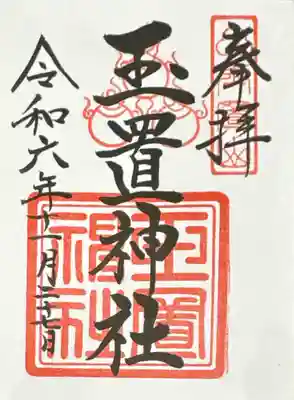 奉拝
玉置神社
令和六年十一月二十七日
玉置
神社